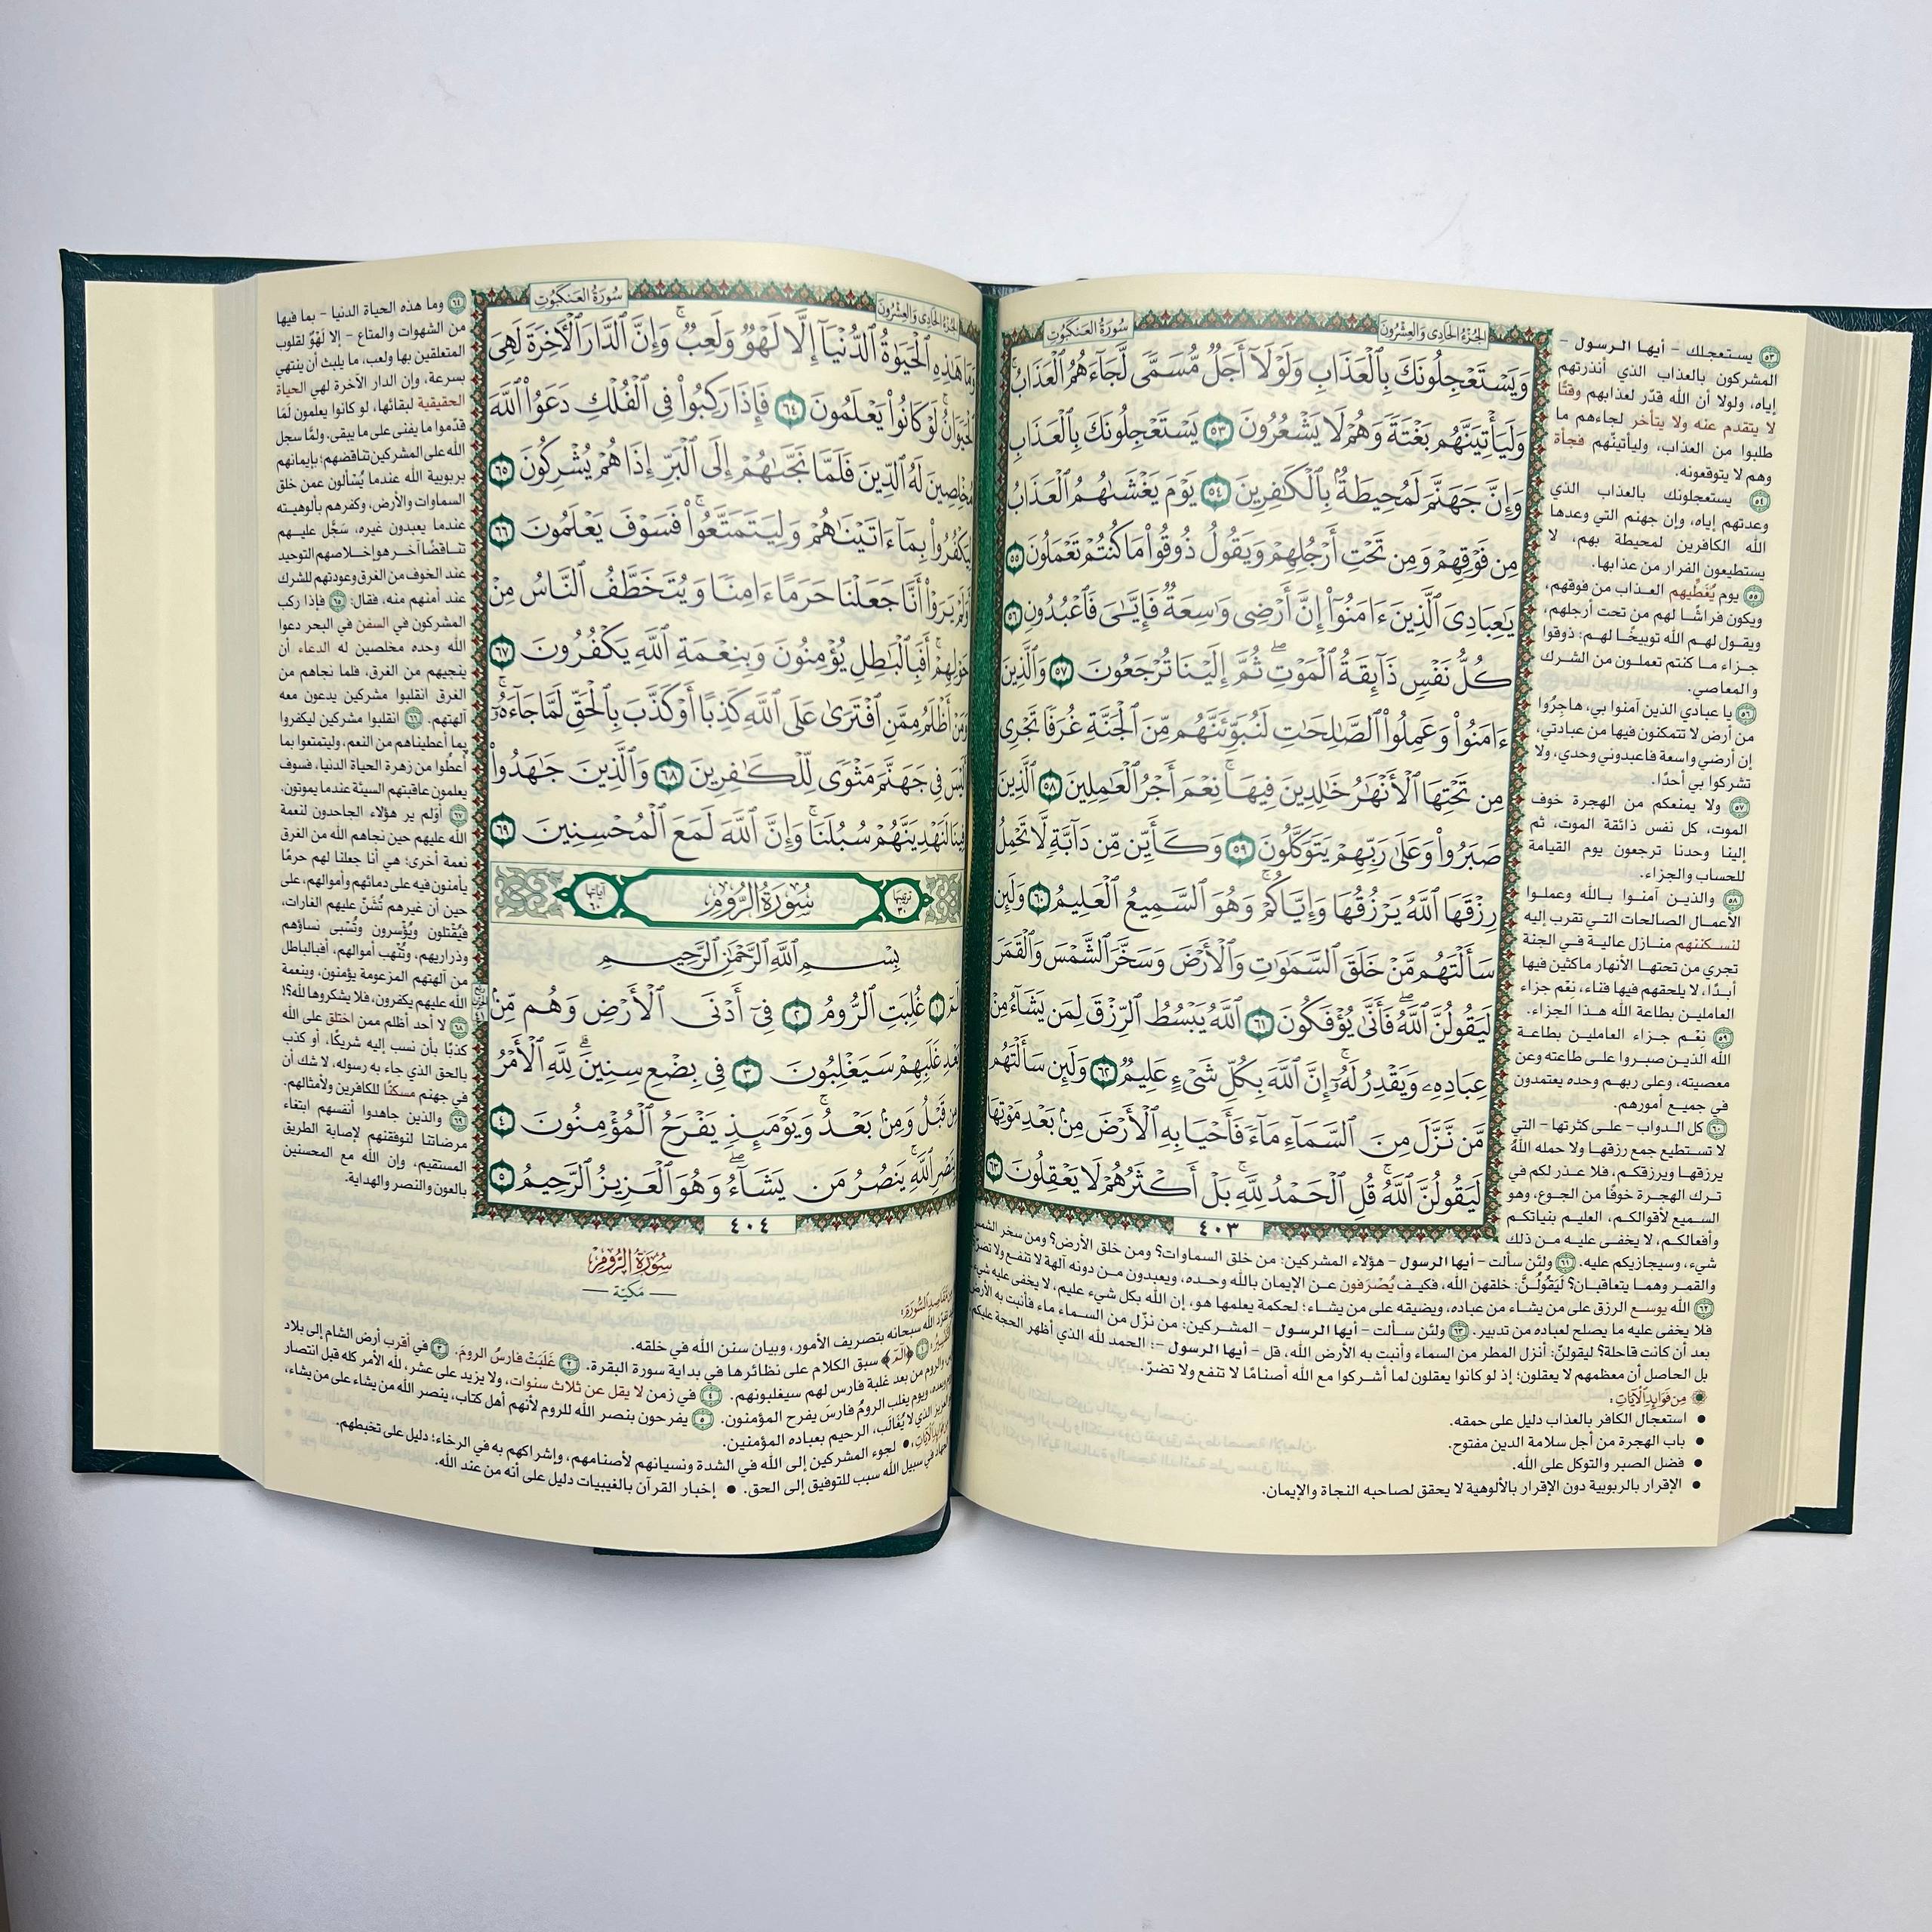 الجُزْءُ الحَادِي وَالعِشْرُونَ
سُورَةُ العَنكَبُوتِ
وَيَسْتَعْجِلُونَكَ بِٱلْعَذَابِ وَلَوْلَآ أَجَلٌ مُّسَمًّى لَّجَآءَهُمُ ٱلْعَذَابُۚ
وَلَيَأْتِيَنَّهُم بَغْتَةً وَهُمْ لَا يَشْعُرُونَ ٥٣ يَسْتَعْجِلُونَكَ بِٱلْعَذَابِ
وَإِنَّ جَهَنَّمَ لَمُحِيطَةٌۢ بِٱلْكَٰفِرِينَ ٥٤ يَوْمَ يَغْشَىٰهُمُ ٱلْعَذَابُ
مِن فَوْقِهِمْ وَمِن تَحْتِ أَرْجُلِهِمْ وَيَقُولُ ذُوقُوا۟ مَا كُنتُمْ تَعْمَلُونَ ٥٥
يَٰعِبَادِىَ ٱلَّذِينَ ءَامَنُوٓا۟ إِنَّ أَرْضِى وَٰسِعَةٌ فَإِيَّٰىَ فَٱعْبُدُونِ ٥٦
كُلُّ نَفْسٍ ذَآئِقَةُ ٱلْمَوْتِۖ ثُمَّ إِلَيْنَا تُرْجَعُونَ ٥٧ وَٱلَّذِينَ
ءَامَنُوا۟ وَعَمِلُوا۟ ٱلصَّٰلِحَٰتِ لَنُبَوِّئَنَّهُم مِّنَ ٱلْجَنَّةِ غُرَفًا تَجْرِى
مِن تَحْتِهَا ٱلْأَنْهَٰرُ خَٰلِدِينَ فِيهَاۚ نِعْمَ أَجْرُ ٱلْعَٰمِلِينَ ٥٨ ٱلَّذِينَ
صَبَرُوا۟ وَعَلَىٰ رَبِّهِمْ يَتَوَكَّلُونَ ٥٩ وَكَأَيِّن مِّن دَآبَّةٍ لَّا تَحْمِلُ
رِزْقَهَا ٱللَّهُ يَرْزُقُهَا وَإِيَّاكُمْۚ وَهُوَ ٱلسَّمِيعُ ٱلْعَلِيمُ ٦٠ وَلَئِن
سَأَلْتَهُم مَّنْ خَلَقَ ٱلسَّمَٰوَٰتِ وَٱلْأَرْضَ وَسَخَّرَ ٱلشَّمْسَ وَٱلْقَمَرَ
لَيَقُولُنَّ ٱللَّهُۖ فَأَنَّىٰ يُؤْفَكُونَ ٦١ ٱللَّهُ يَبْسُطُ ٱلرِّزْقَ لِمَن يَشَآءُ مِنْ
عِبَادِهِۦ وَيَقْدِرُ لَهُۥٓۚ إِنَّ ٱللَّهَ بِكُلِّ شَىْءٍ عَلِيمٌ ٦٢ وَلَئِن سَأَلْتَهُم
مَّن نَّزَّلَ مِنَ ٱلسَّمَآءِ مَآءً فَأَحْيَا بِهِ ٱلْأَرْضَ مِنۢ بَعْدِ مَوْتِهَا
لَيَقُولُنَّ ٱللَّهُۚ قُلِ ٱلْحَمْدُ لِلَّهِۚ بَلْ أَكْثَرُهُمْ لَا يَعْقِلُونَ ٦٣
٤٠٣
٥٣ يستعجلك - أيها الرسول -
المشركون بالعذاب الذي أنذرتهم
إياه، ولولا أن الله قدّر لعذابهم وقتًا
لا يتقدم عنه ولا يتأخر لجاءهم ما
طلبوا من العذاب، وليأتينّهم فجأة
وهم لا يتوقعونه.
٥٤ يستعجلونك بالعذاب الذي
وعدتهم إياه، وإن جهنم التي وعدها
الله الكافرين لمحيطة بهم، لا
يستطيعون الفرار من عذابها.
٥٥ يوم يُغَطِّيهم العذاب من فوقهم،
ويكون فراشًا لهم من تحت أرجلهم،
ويقول لهم الله توبيخًا لهم: ذوقوا
جزاء ما كنتم تعملون من الشرك
والمعاصي.
٥٦ يا عبادي الذين آمنوا بي، هاجِرُوا
من أرض لا تتمكنون فيها من عبادتي،
إن أرضي واسعة فاعبدوني وحدي، ولا
تشركوا بي أحدًا.
٥٧ ولا يمنعكم من الهجرة خوف
الموت، كل نفس ذائقة الموت، ثم
إلينا وحدنا ترجعون يوم القيامة
للحساب والجزاء.
٥٨ والذين آمنوا بالله وعملوا
الأعمال الصالحات التي تقرب إليه
لنسكننهم منازل عالية في الجنة
تجري من تحتها الأنهار ماكثين فيها
أبدًا، لا يلحقهم فيها فناء، نِعْم جزاء
العاملين بطاعة الله هذا الجزاء.
٥٩ نِعْم جزاء العاملين بطاعة
الله الذين صبروا على طاعته وعن
معصيته، وعلى ربهم وحده يعتمدون
في جميع أمورهم.
٦٠ كل الدواب - على كثرتها - التي
لا تستطيع جمع رزقها ولا حمله الله
يرزقها ويرزقكم، فلا عذر لكم في
ترك الهجرة خوفًا من الجوع، وهو
السميع لأقوالكم، العليم بنياتكم
وأفعالكم، لا يخفى عليه من ذلك
شيء، وسيجازيكم عليه. ٦١ ولئن سألت - أيها الرسول - هؤلاء المشركين: من خلق السماوات؟ ومن خلق الأرض؟ ومن سخر الشمس
والقمر وهما يتعاقبان؟ لَيَقُولُنَّ: خلقهن الله، فكيف يُصْرَفون عن الإيمان بالله وحده، ويعبدون من دونه آلهة لا تنفع ولا تضر؟
٦٢ الله يوسع الرزق على من يشاء من عباده، ويضيقه على من يشاء؛ لحكمة يعلمها هو، إن الله بكل شيء عليم، لا يخفى عليه شيء،
فلا يخفى عليه ما يصلح لعباده من تدبير. ٦٣ ولئن سألت - أيها الرسول - المشركين: من نزّل من السماء ماء فأنبت به الأرض
بعد أن كانت قاحلة؟ ليقولنّ: أنزل المطر من السماء وأنبت به الأرض الله، قل - أيها الرسول -: الحمد لله الذي أظهر الحجة عليكم،
بل الحاصل أن معظمهم لا يعقلون؛ إذ لو كانوا يعقلون لما أشركوا مع الله أصنامًا لا تنفع ولا تضرّ.
مِن فَوَائِدِ الآيَاتِ:
• استعجال الكافر بالعذاب دليل على حمقه.
• باب الهجرة من أجل سلامة الدين مفتوح.
• فضل الصبر والتوكل على الله.
• الإقرار بالربوبية دون الإقرار بالألوهية لا يحقق لصاحبه النجاة والإيمان.
الجُزْءُ الحَادِي وَالعِشْرُونَ
سُورَةُ العَنكَبُوتِ
وَمَا هَٰذِهِ ٱلْحَيَوٰةُ ٱلدُّنْيَآ إِلَّا لَهْوٌ وَلَعِبٌۚ وَإِنَّ ٱلدَّارَ ٱلْآخِرَةَ لَهِىَ
ٱلْحَيَوَانُۚ لَوْ كَانُوا۟ يَعْلَمُونَ ٦٤ فَإِذَا رَكِبُوا۟ فِى ٱلْفُلْكِ دَعَوُا۟ ٱللَّهَ
مُخْلِصِينَ لَهُ ٱلدِّينَ فَلَمَّا نَجَّىٰهُمْ إِلَى ٱلْبَرِّ إِذَا هُمْ يُشْرِكُونَ ٦٥
لِيَكْفُرُوا۟ بِمَآ ءَاتَيْنَٰهُمْ وَلِيَتَمَتَّعُوا۟ۖ فَسَوْفَ يَعْلَمُونَ ٦٦
أَوَلَمْ يَرَوْا۟ أَنَّا جَعَلْنَا حَرَمًا ءَامِنًا وَيُتَخَطَّفُ ٱلنَّاسُ مِنْ
حَوْلِهِمْۚ أَفَبِٱلْبَٰطِلِ يُؤْمِنُونَ وَبِنِعْمَةِ ٱللَّهِ يَكْفُرُونَ ٦٧
وَمَنْ أَظْلَمُ مِمَّنِ ٱفْتَرَىٰ عَلَى ٱللَّهِ كَذِبًا أَوْ كَذَّبَ بِٱلْحَقِّ لَمَّا جَآءَهُۥٓۚ
أَلَيْسَ فِى جَهَنَّمَ مَثْوًى لِّلْكَٰفِرِينَ ٦٨ وَٱلَّذِينَ جَٰهَدُوا۟
فِينَا لَنَهْدِيَنَّهُمْ سُبُلَنَاۚ وَإِنَّ ٱللَّهَ لَمَعَ ٱلْمُحْسِنِينَ ٦٩
ترتيبها ٣٠ سُورَةُ الرُّومِ آياتها ٦٠
بِسْمِ ٱللَّهِ ٱلرَّحْمَٰنِ ٱلرَّحِيمِ
الٓمٓ ١ غُلِبَتِ ٱلرُّومُ ٢ فِىٓ أَدْنَى ٱلْأَرْضِ وَهُم مِّنۢ
بَعْدِ غَلَبِهِمْ سَيَغْلِبُونَ ٣ فِى بِضْعِ سِنِينَۗ لِلَّهِ ٱلْأَمْرُ
مِن قَبْلُ وَمِنۢ بَعْدُۚ وَيَوْمَئِذٍ يَفْرَحُ ٱلْمُؤْمِنُونَ ٤
بِنَصْرِ ٱللَّهِۚ يَنصُرُ مَن يَشَآءُۖ وَهُوَ ٱلْعَزِيزُ ٱلرَّحِيمُ ٥
٤٠٤
٦٤ وما هذه الحياة الدنيا - بما فيها
من الشهوات والمتاع - إلا لَهْوٌ لقلوب
المتعلقين بها ولعب، ما يلبث أن ينتهي
بسرعة، وإن الدار الآخرة لهي الحياة
الحقيقية لبقائها، لو كانوا يعلمون لَمَا
قدّموا ما يفنى على ما يبقى. ولمّا سجل
الله على المشركين تناقضهم؛ بإيمانهم
بربوبية الله عندما يُسْألون عمن خلق
السماوات والأرض، وكفرهم بألوهيته
عندما يعبدون غيره، سَجَّل عليهم
تناقضًا آخر هو إخلاصهم التوحيد
عند الخوف من الغرق وعودتهم للشرك
عند أمنهم منه، فقال: ٦٥ فإذا ركب
المشركون في السفن في البحر دعوا
الله وحده مخلصين له الدعاء أن
ينجيهم من الغرق، فلما نجاهم من
الغرق انقلبوا مشركين يدعون معه
آلهتهم. ٦٦ انقلبوا مشركين ليكفروا
بما أعطيناهم من النعم، وليتمتعوا بما
أُعطُوا من زهرة الحياة الدنيا، فسوف
يعلمون عاقبتهم السيئة عندما يموتون.
٦٧ أوَلم ير هؤلاء الجاحدون لنعمة
الله عليهم حين نجاهم الله من الغرق
نعمة أخرى؛ هي أنا جعلنا لهم حرمًا
يأمنون فيه على دمائهم وأموالهم، على
حين أن غيرهم تُشَنّ عليهم الغارات،
فيُقْتلون ويُؤْسرون وتُسْبى نساؤهم
وذراريهم، وتُنْهب أموالهم، أفبالباطل
من آلهتهم المزعومة يؤمنون، وبنعمة
الله عليهم يكفرون، فلا يشكروها لله؟!
٦٨ لا أحد أظلم ممن اختلق على الله
كذبًا بأن نسب إليه شريكًا، أو كذب
بالحق الذي جاء به رسوله، لا شك أن
في جهنم مسكنًا للكافرين ولأمثالهم.
٦٩ والذين جاهدوا أنفسهم ابتغاء
مرضاتنا لنوفقنهم لإصابة الطريق
المستقيم، وإن الله مع المحسنين
بالعون والنصر والهداية.
سُورَةُ الرُّومِ
مَكيّة
مَقَاصِدِ السُّورَةِ:
الله سبحانه بتصريف الأمور، وبيان سنن الله في خلقه.
١ ﴿الٓمٓ﴾ سبق الكلام على نظائرها في بداية سورة البقرة. ٢ غَلَبَتْ فارسُ الرومَ. ٣ في أقرب أرض الشام إلى بلاد
والروم من بعد غلبة فارس لهم سيغلبونهم. ٤ في زمن لا يقل عن ثلاث سنوات، ولا يزيد على عشر، لله الأمر كله قبل انتصار
وبعده، ويوم يغلب الرومُ فارسَ يفرح المؤمنون. ٥ يفرحون بنصر الله للروم لأنهم أهل كتاب، ينصر الله من يشاء على من يشاء،
العزيز الذي لا يُغَالَب، الرحيم بعباده المؤمنين.
• لجوء المشركين إلى الله في الشدة ونسيانهم لأصنامهم، وإشراكهم به في الرخاء؛ دليل على تخبطهم.
في سبيل الله سبب للتوفيق إلى الحق. • إخبار القرآن بالغيبيات دليل على أنه من عند الله.